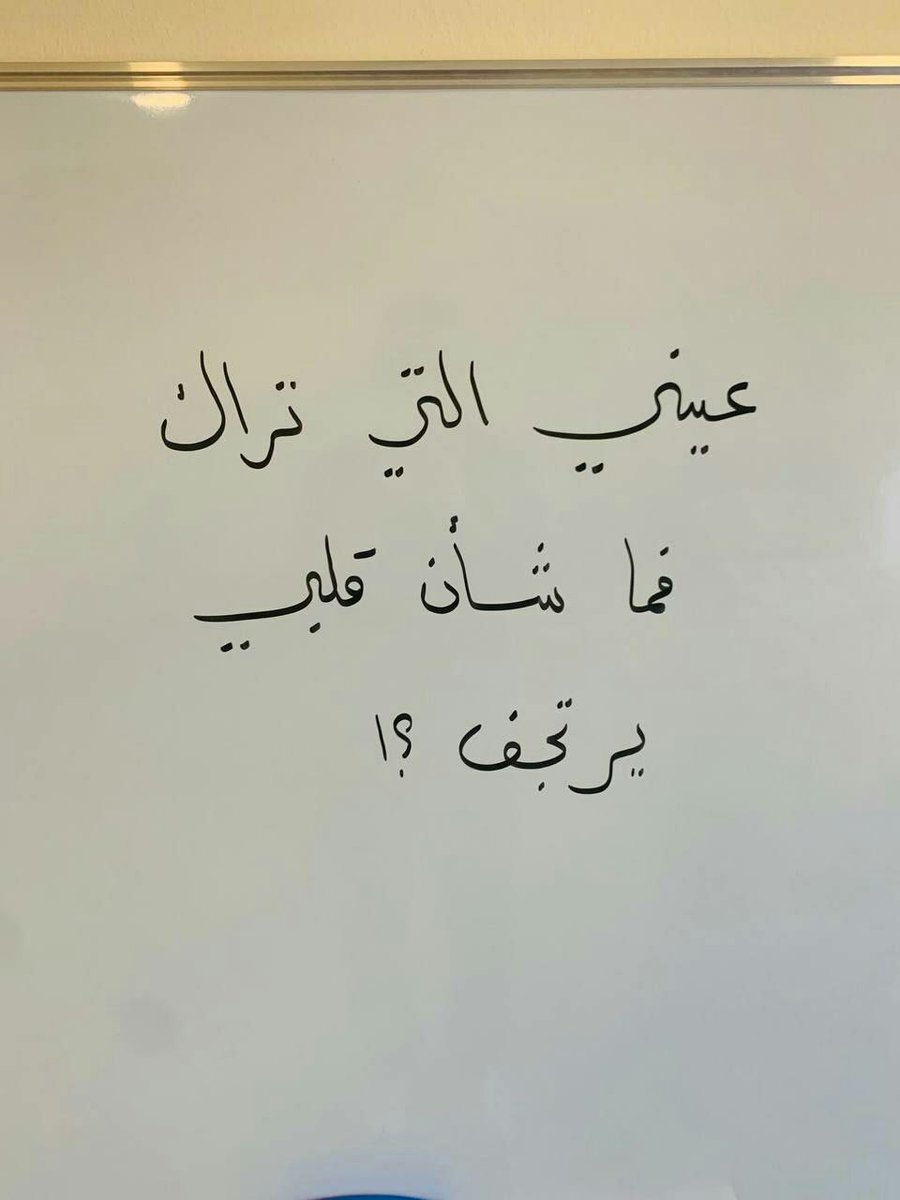 عيني التي تراك
فما شأن قلبي
يرتجف ؟!